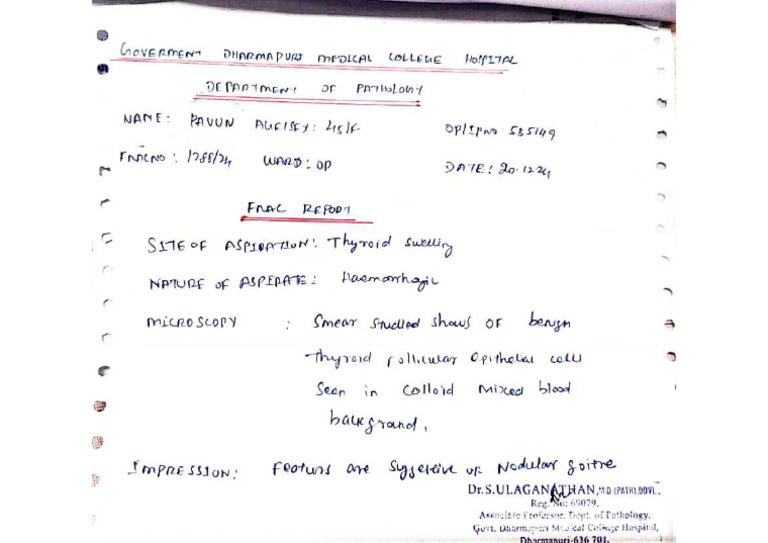 GOVERMENT DHARMAPURI MEDICAL COLLEGE HOSPITAL
DEPARTMENT OF PATHOLOGY
NAME: PAVUN AGE/SEX: 45/F OP/IP NO 535149
FNAC NO: 1785/24 WARD: OP DATE: 20.12.24
FNAC REPORT
SITE OF ASPIRATION: Thyroid swelling
NATURE OF ASPIRATE: Haemorrhagic
MICROSCOPY : Smear studied shows OF benign
Thyroid follicular epithelial cells
Seen in colloid mixed blood
background.
IMPRESSION: Features are suggestive of Nodular goitre
Dr.S.ULAGANATHAN, M.D.(PATH).DDVL.,
Reg. No: 69079,
Associate Professor, Dept. of Pathology,
Govt. Dharmapuri Medical College Hospital,
Dharmapuri-636 701.